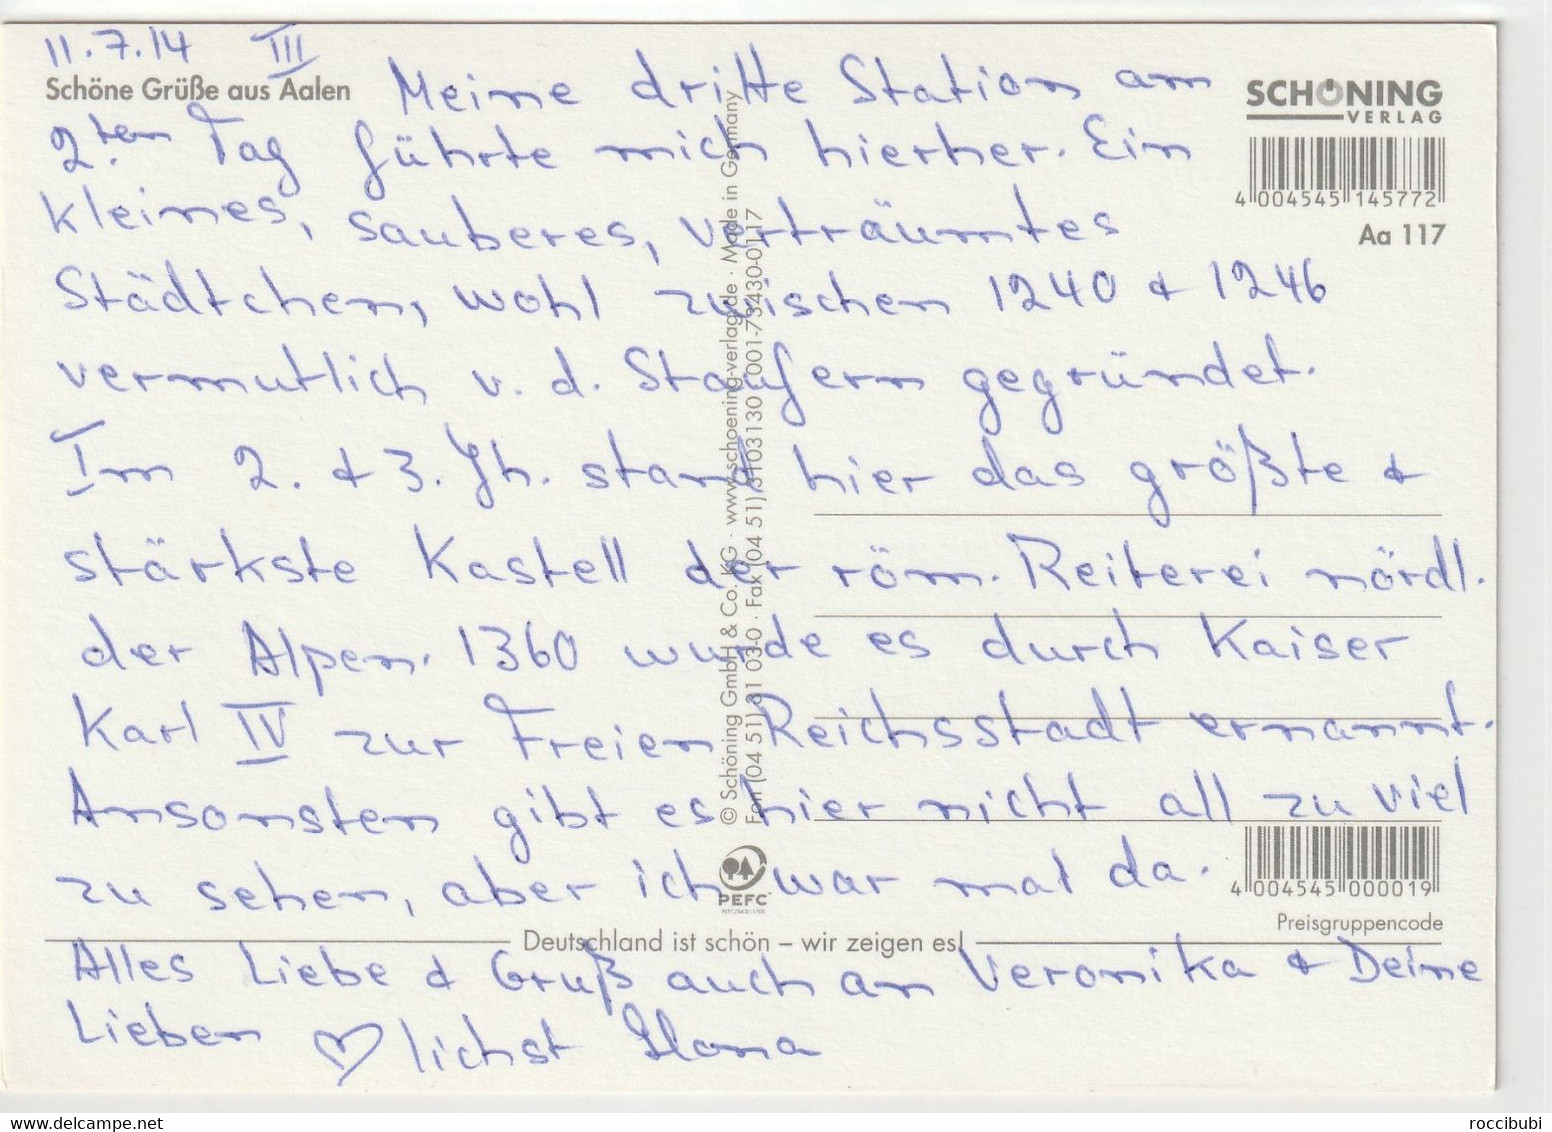 11.7.14 III
Schöne Grüße aus Aalen
Meine dritte Station am
2.ten Tag führte mich hierher. Ein
kleines, sauberes, verträumtes
Städtchen, wohl zwischen 1240 & 1246
vermutlich v. d. Staufern gegründet.
Im 2. & 3. Jh. stand hier das größte &
stärkste Kastell der röm. Reiterei nördl.
der Alpen. 1360 wurde es durch Kaiser
Karl IV zur Freien Reichsstadt ernannt.
Ansonsten gibt es hier nicht all zu viel
zu sehen, aber ich war mal da.
Alles Liebe & Gruß auch an Veronika & Deine
Lieben ♡lichst Ilona
SCHÖNING
VERLAG
4 004545 145772
Aa 117
© Schöning GmbH & Co. KG · www.schoening-verlag.de · Made in Germany
Fon (04 51) 31 03-0 · Fax (04 51) 3103130 · 001-73430-0117
PEFC
4 004545 000019
Preisgruppencode
Deutschland ist schön – wir zeigen es!
www.delcampe.net
roccibubi